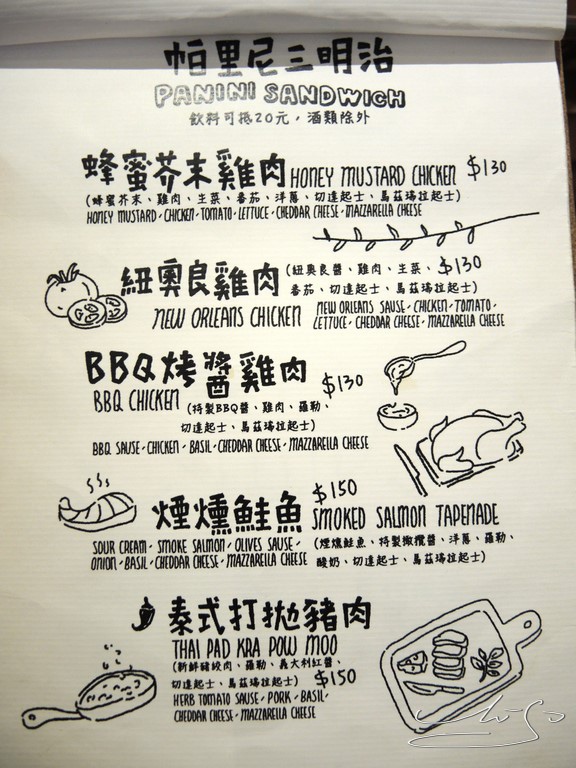 帕里尼三明治
PANINI SANDWICH
飲料可抵20元，酒類除外
蜂蜜芥末雞肉 HONEY MUSTARD CHICKEN $130
(蜂蜜芥末、雞肉、生菜、番茄、洋蔥、切達起士、馬茲瑞拉起士)
HONEY MUSTARD、CHICKEN、TOMATO、LETTUCE、CHEDDAR CHEESE、MAZZARELLA CHEESE
紐奧良雞肉 (紐奧良醬、雞肉、生菜、 $130
番茄、切達起士、馬茲瑞拉起士)
NEW ORLEANS CHICKEN NEW ORLEANS SAUSE、CHICKEN、TOMATO、
LETTUCE、CHEDDAR CHEESE、MAZZARELLA CHEESE
BBQ烤醬雞肉 $130
BBQ CHICKEN (特製BBQ醬、雞肉、羅勒、
切達起士、馬茲瑞拉起士)
BBQ SAUSE、CHICKEN、BASIL、CHEDDAR CHEESE、MAZZARELLA CHEESE
煙燻鮭魚 $150
SMOKED SALMON TAPENADE
SOUR CREAM、SMOKE SALMON、OLIVES SAUSE、
ONION、BASIL、CHEDDAR CHEESE、MAZZARELLA CHEESE
(煙燻鮭魚、特製橄欖醬、洋蔥、羅勒、
酸奶、切達起士、馬茲瑞拉起士)
泰式打拋豬肉
THAI PAD KRA POW MOO
(新鮮豬絞肉、羅勒、義大利紅醬、
切達起士、馬茲瑞拉起士) $150
HERB TOMATO SAUSE、PORK、BASIL、
CHEDDAR CHEESE、MAZZARELLA CHEESE